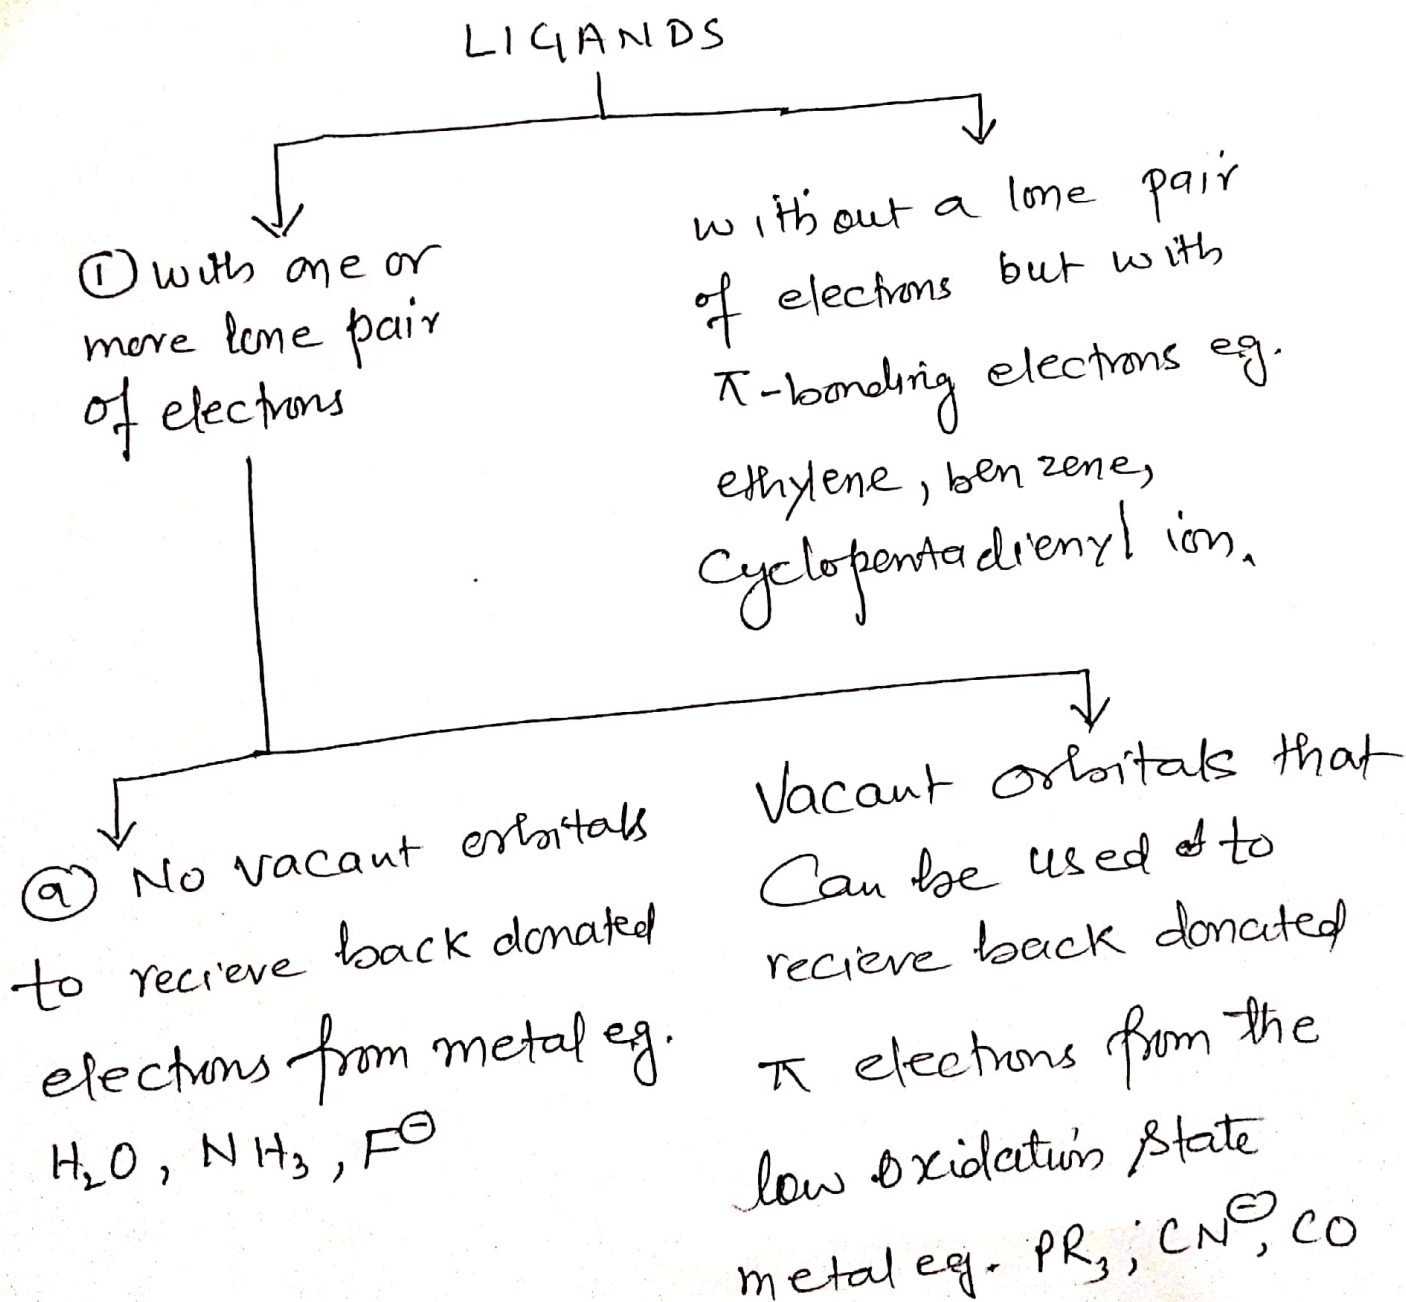 LIGANDS
① with one or
more lone pair
of electrons
without a lone pair
of electrons but with
π-bonding electrons eg.
ethylene, benzene,
Cyclopentadienyl ion.
ⓐ No vacant orbitals
to recieve back donated
electrons from metal eg.
H₂O, NH₃, F⊖
Vacant orbitals that
Can be used to
recieve back donated
π electrons from the
low oxidation state
metal eg. PR₃, CN⊖, CO